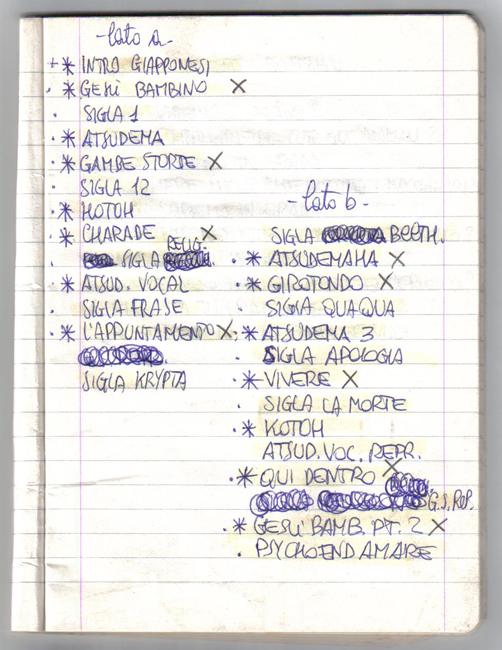 - lato a -
+ * INTRO GIAPPONESI
· * GESÙ BAMBINO X
· SIGLA 1
· * ATSUDEMA
· * GAMBE STORTE X
· SIGLA 12
* KOTOH
· * CHARADE X
RELIG.
· SIGLA
· * ATSUD. VOCAL
· SIGLA FRASE
· * L'APPUNTAMENTO X
SIGLA KRYPTA
- lato b -
SIGLA BEETH.
· * ATSUDEMAHA X
· * GIROTONDO X
· SIGLA QUAQUA
· * ATSUDEMA 3
SIGLA APOLOGIA
· * VIVERE X
· SIGLA LA MORTE
· * KOTOH
ATSUD. VOC. REPR.
· * QUI DENTRO X
G.S. REP.
· * GESÙ BAMB. PT. 2 X
· PSYCHOEND AMARE